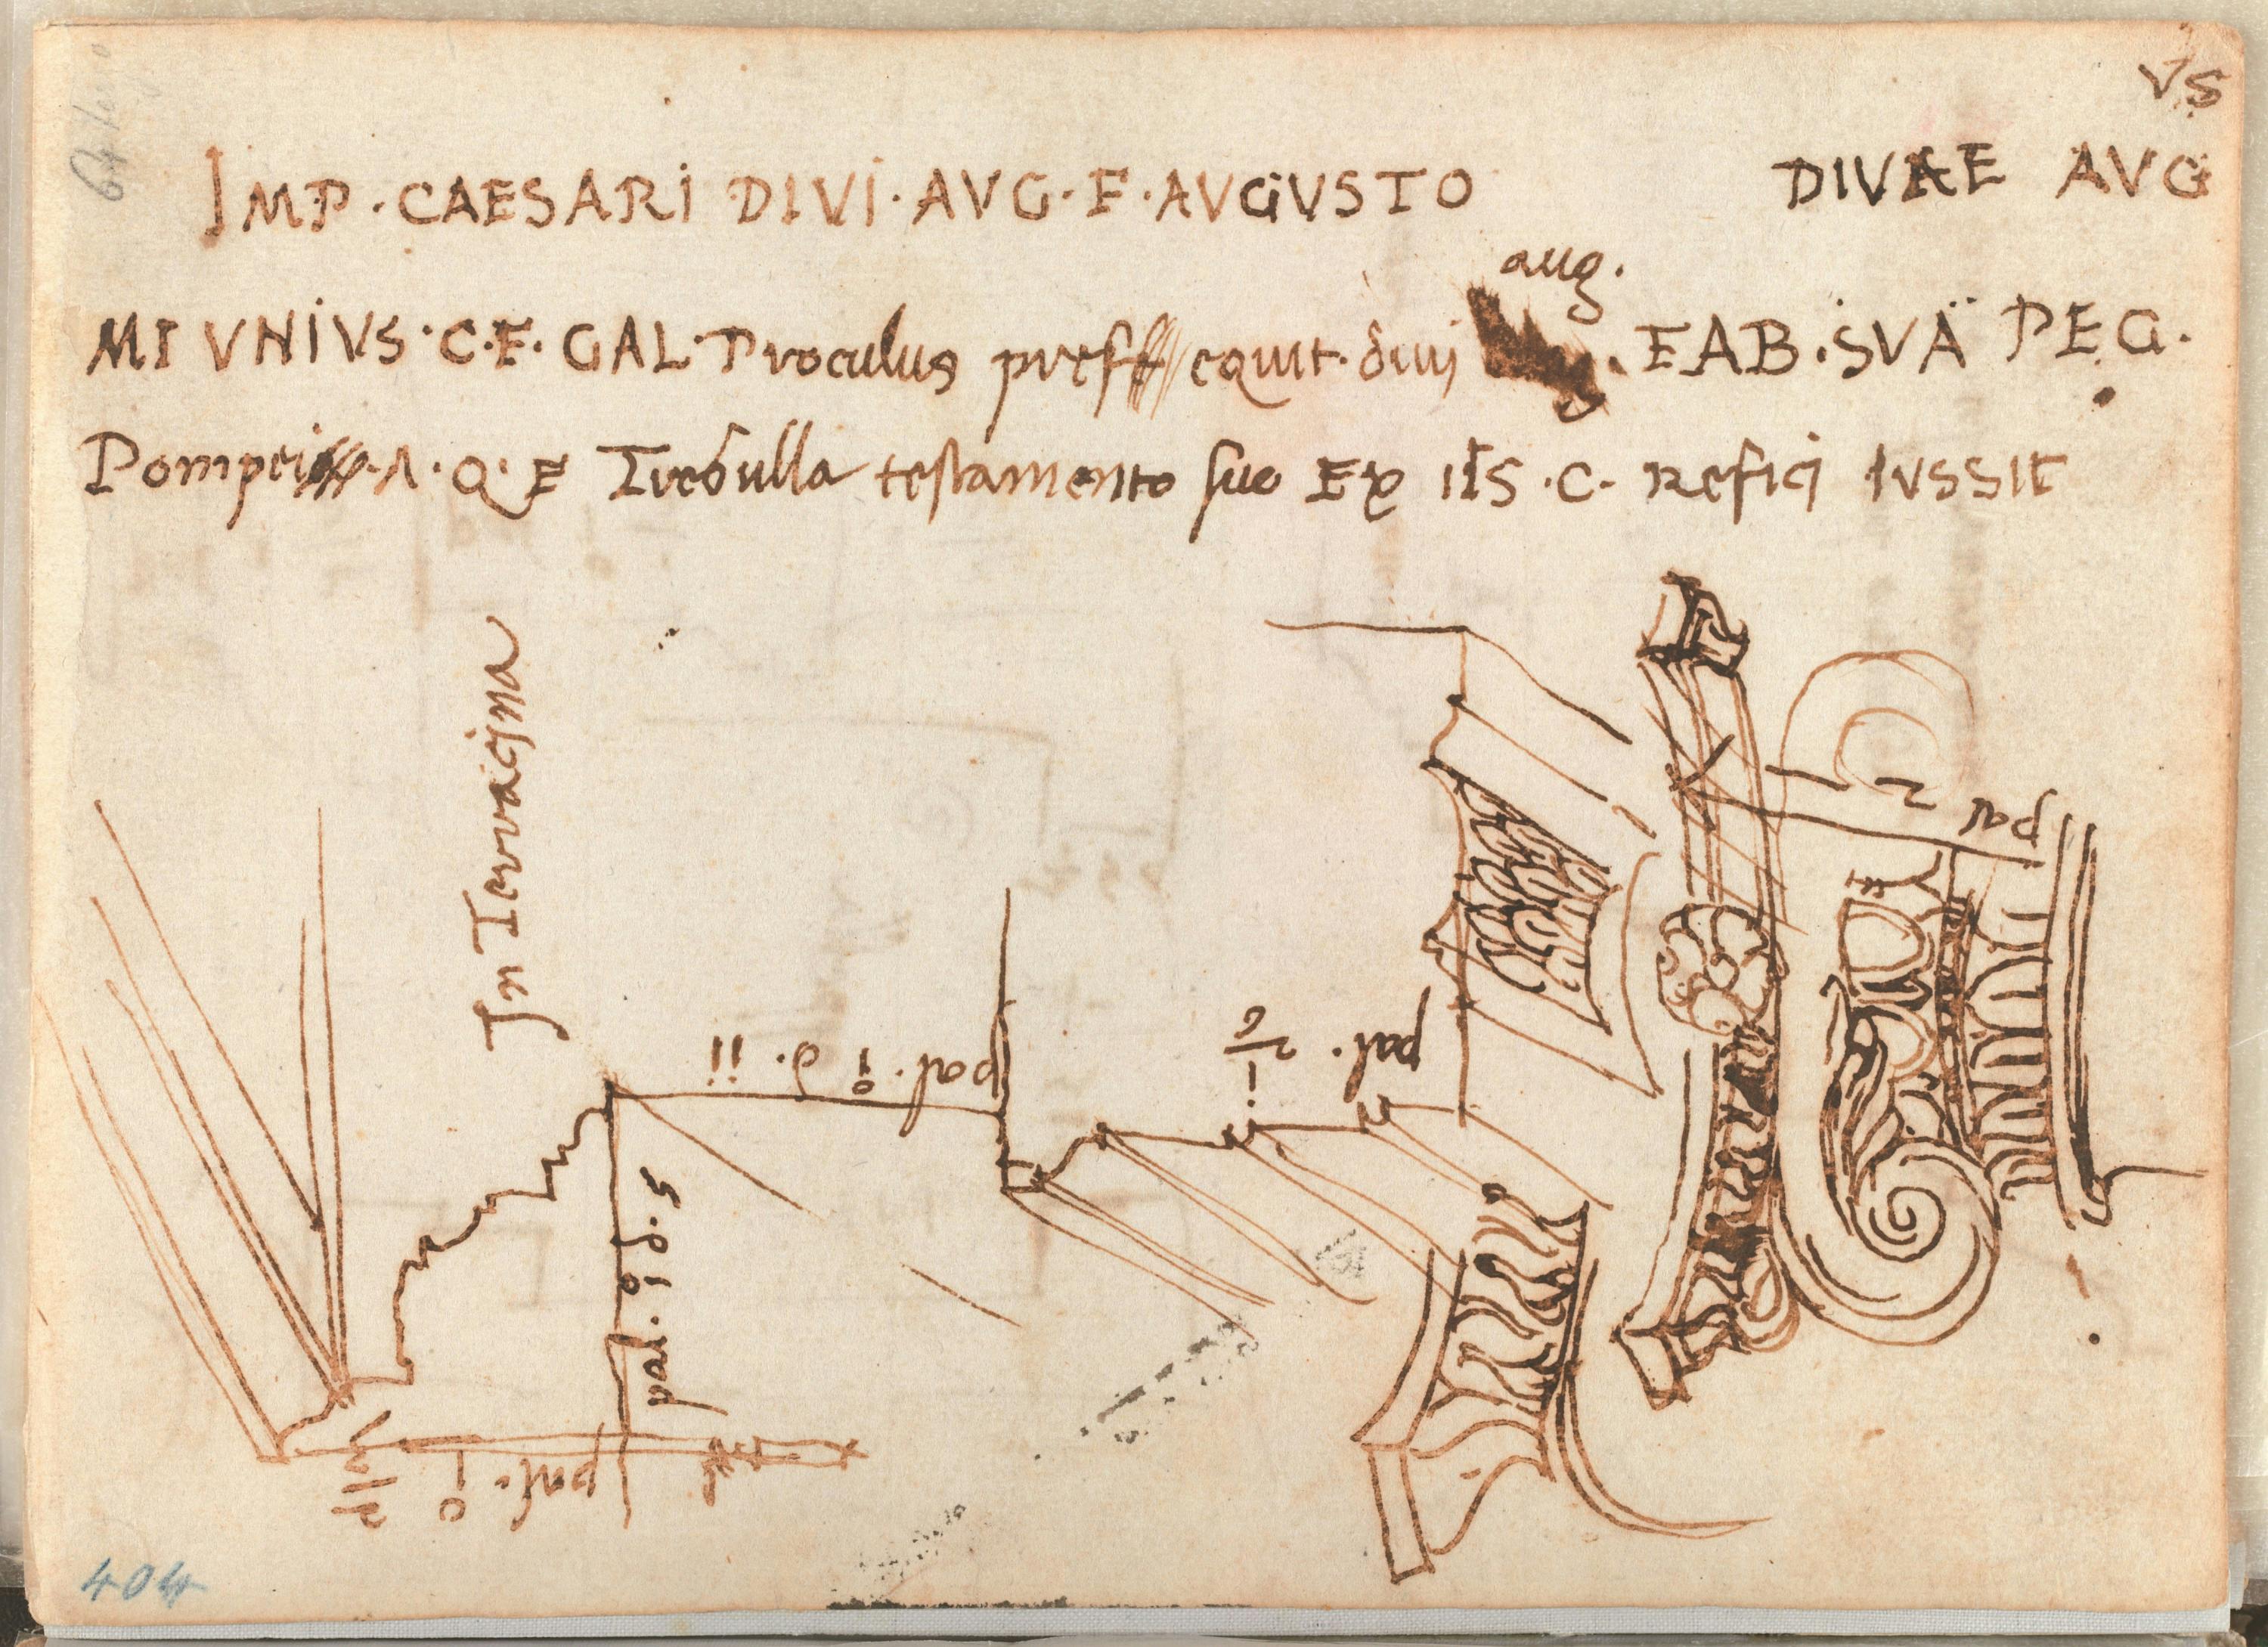 VS
IMP · CAESARI DIVI · AVG · F · AVGVSTO DIVAE AVG
aug.
MIVNIVS · C · F · GAL · Proculus preff equit · divi · FAB · SVA PEG.
Pompei · Λ · Q · F Trebulla testamento suo Ex IIS · C · Refici IVSSIT
In Terracina
pal. 2
pal. 2
pal. 10 d. 11
pal. 10. d. 5
pal.
404